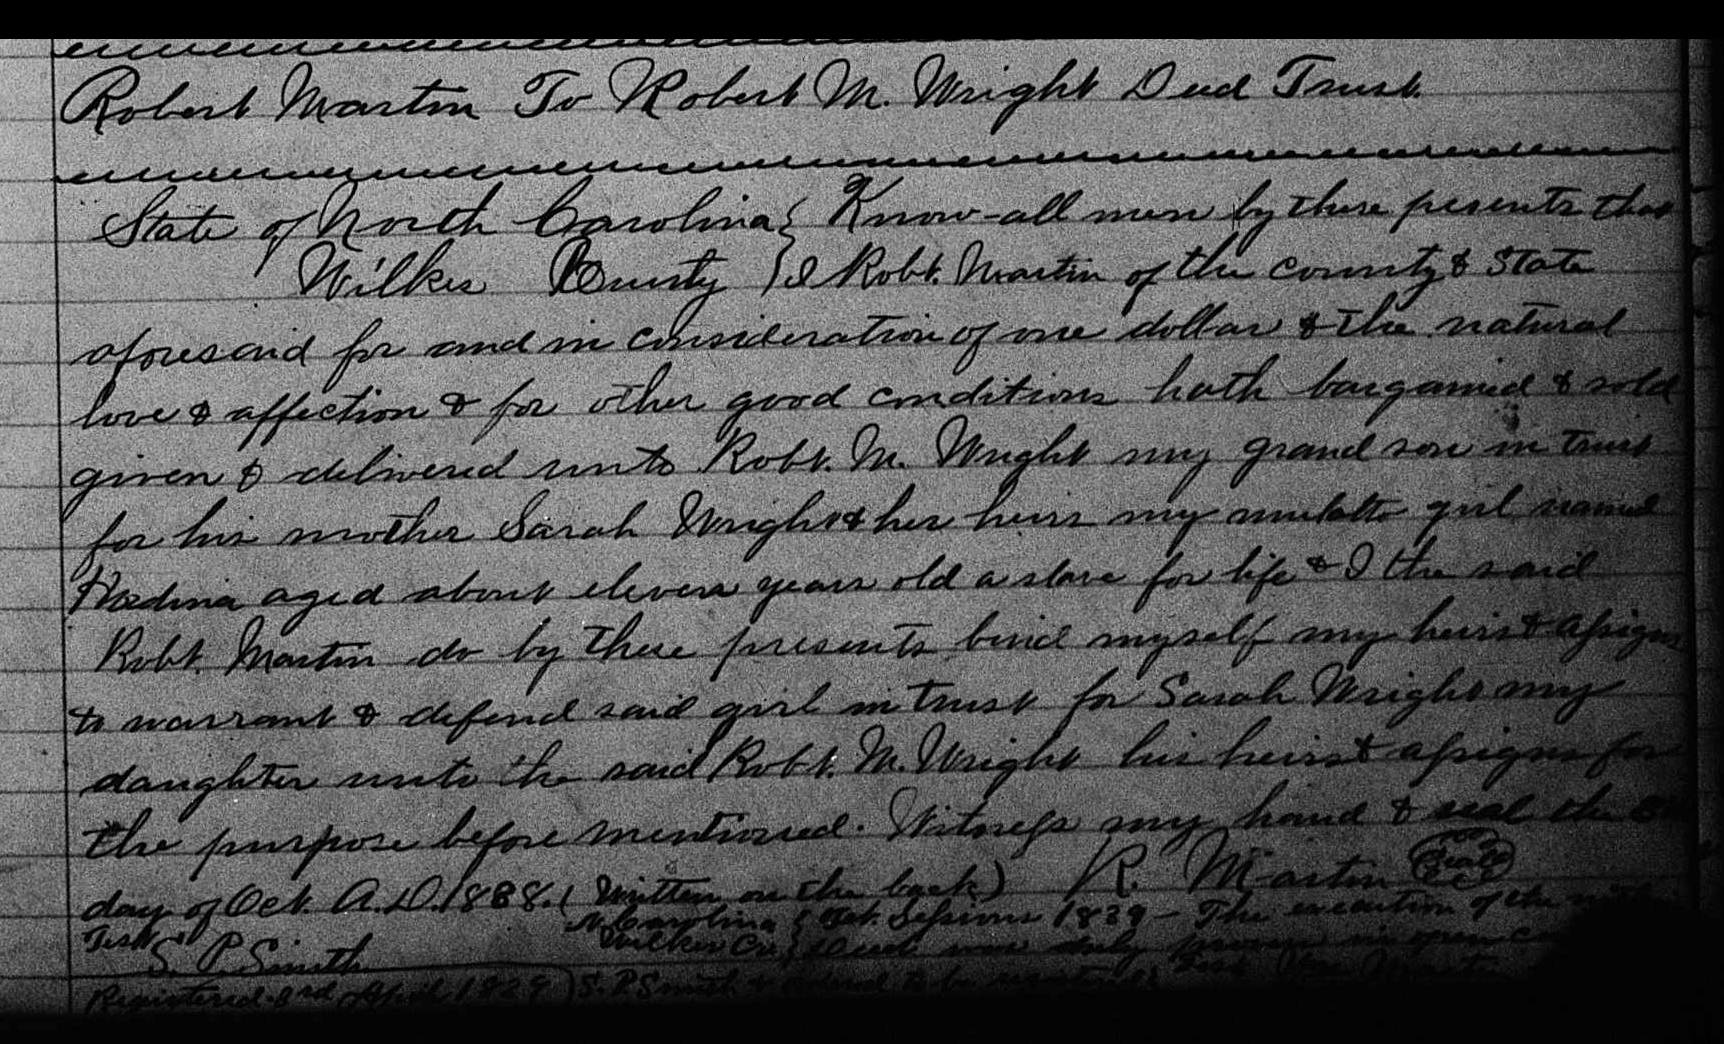 Robert Martin To Robert M. Wright Deed Trust
State of North Carolina } Know-all men by these pesents that
Wilkes County } I Robt. Martin of the county & State
aforesaid for and in consideration of one dollar & the natural
love & affection & for other good conditions hath bargained & sold
given & delivered unto Robt. M. Wright my grand son in trust
for his mother Sarah Wright & her heirs my mulatto girl named
aged about eleven years old a slave for life & I the said
Robt. Martin do by these presents bind myself my heirs & assigns
to warrant & defend said girl in trust for Sarah Wright my
daughter unto the said Robt. M. Wright his heirs & assigns for
the purpose before mentioned. Witness my hand & seal the
day of Oct. A.D. 1838. (Written on the back) R. Martin Seal
Test N. Carolina } Oct. Sessions 1839 - The execution of the
S. P. Smith Wilkes Co. } Deed was duly proven in open
Registered 3rd April 1829 ) S. P. Smith & to be registered